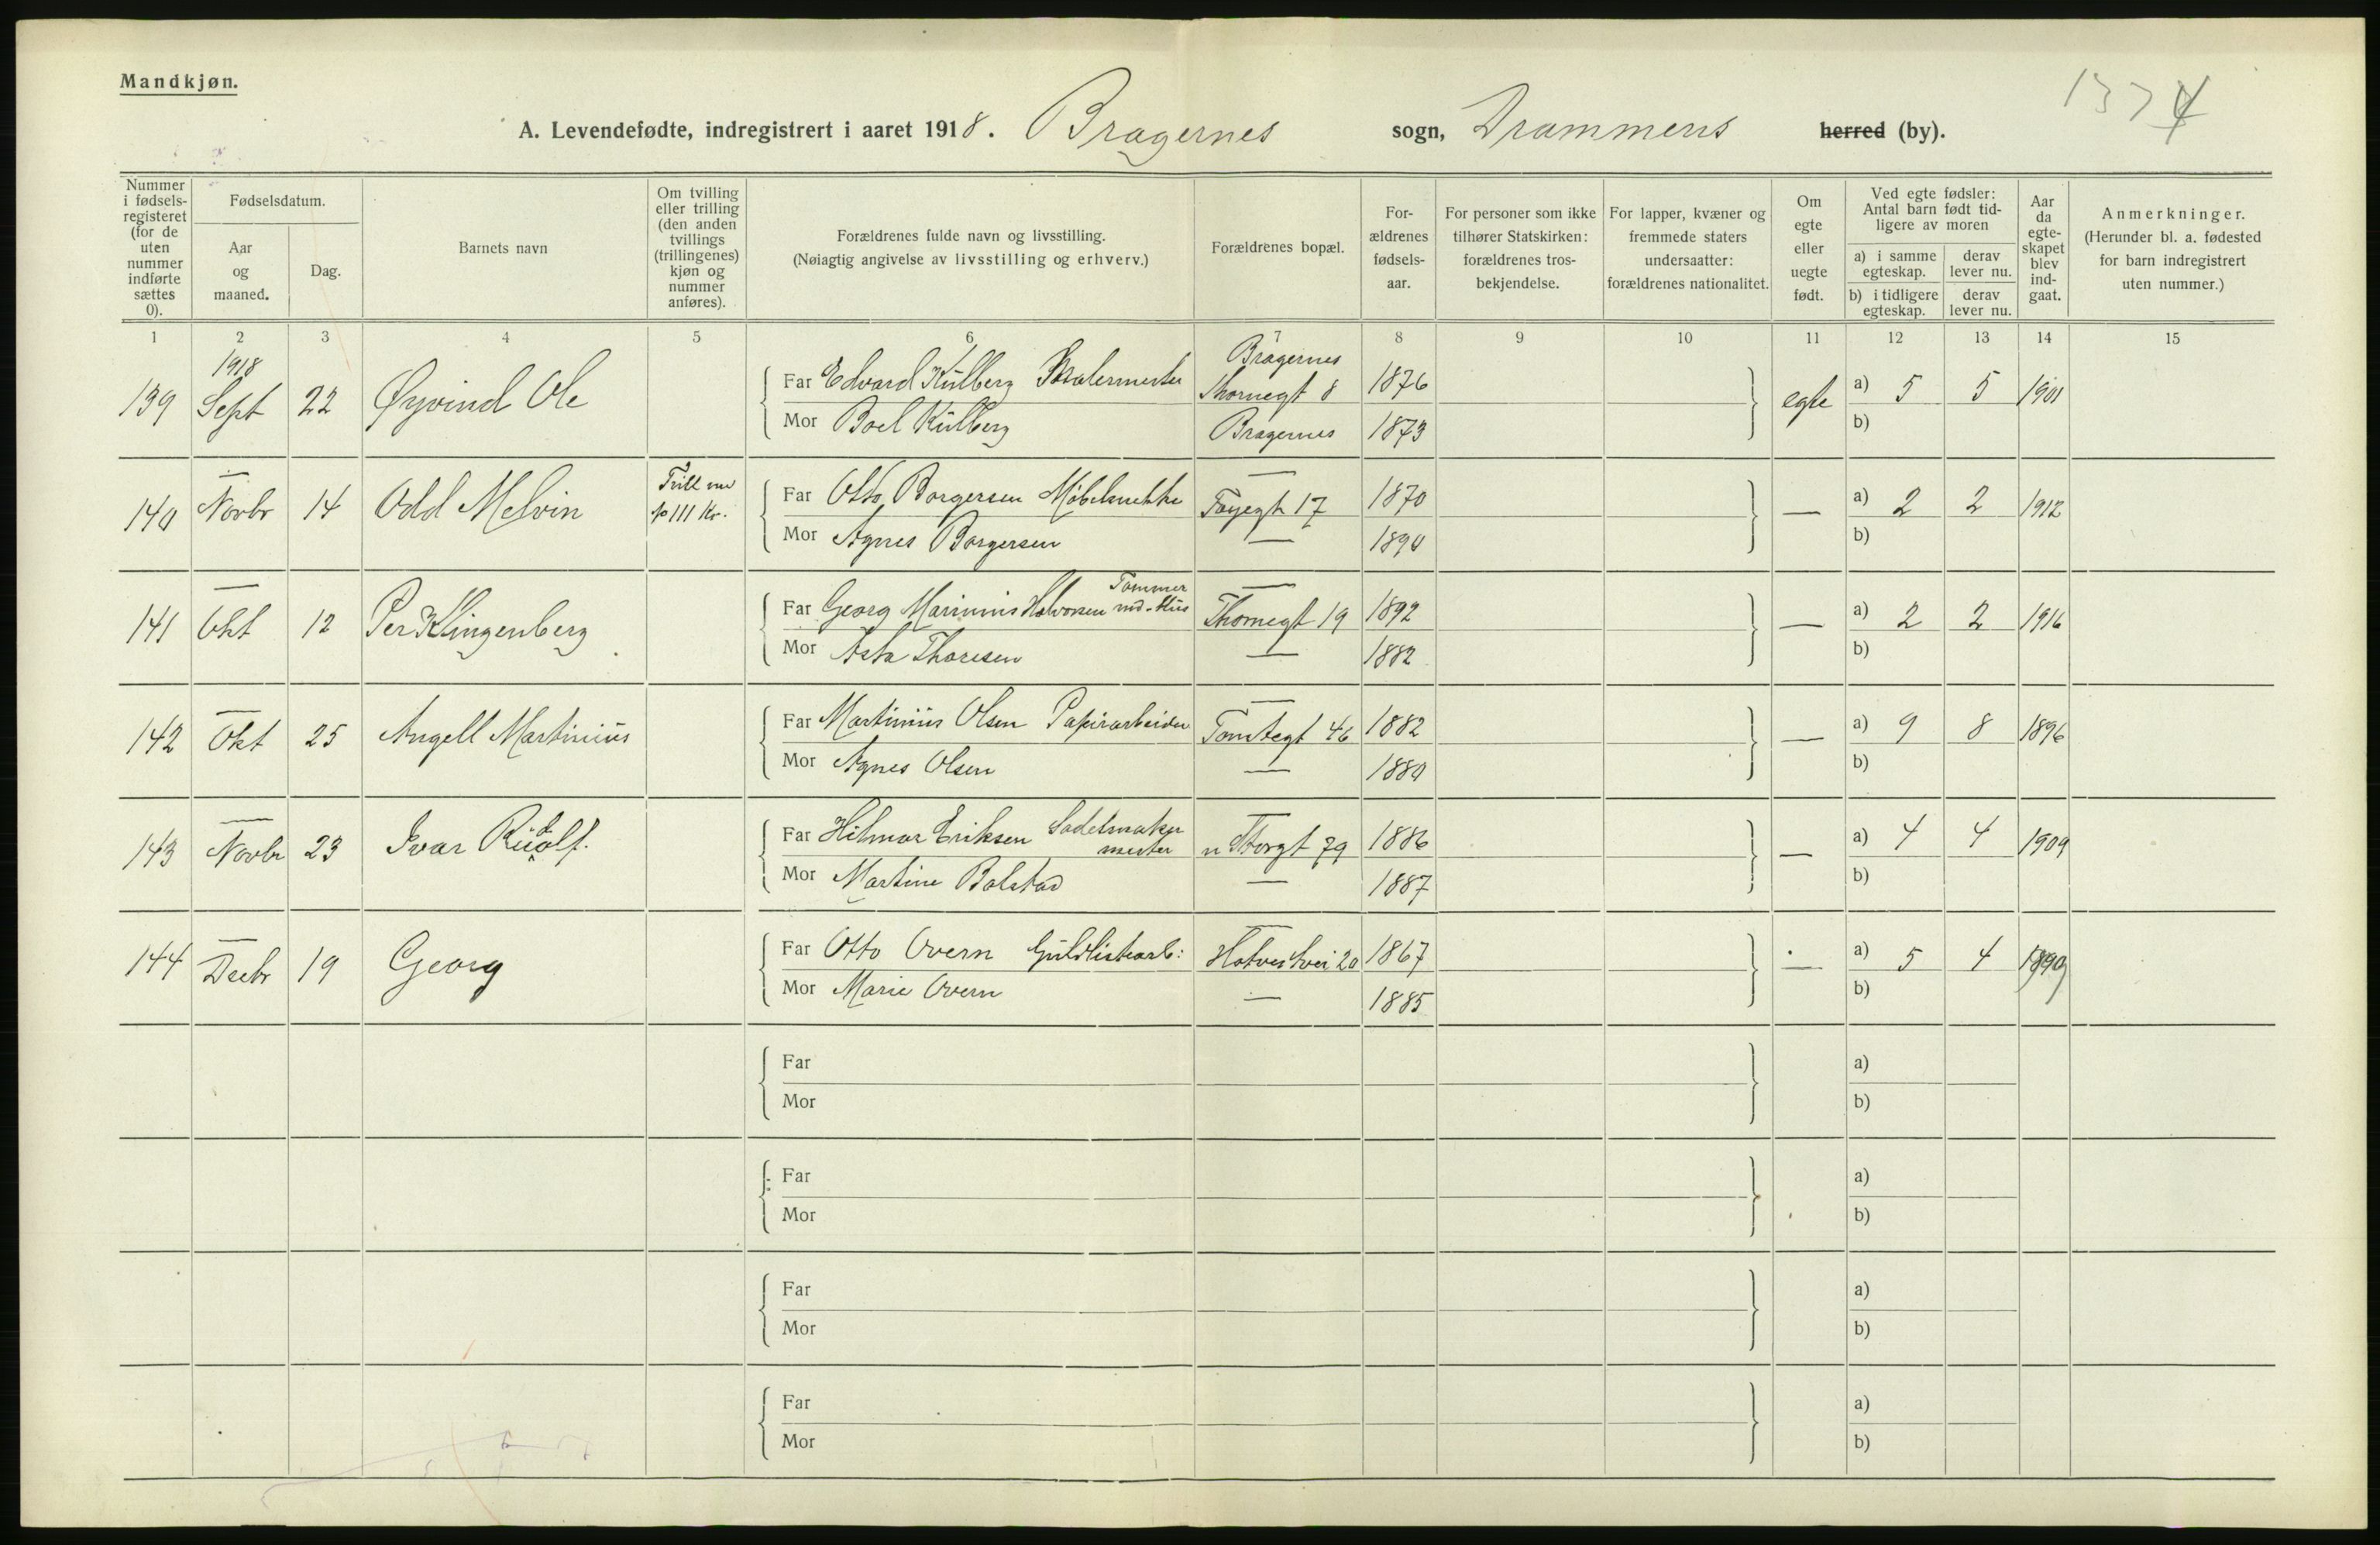 Mandkjøn.
1374
A. Levendefødte, indregistrert i aaret 1918. Bragernes sogn, Drammens herred (by).
Nummer i fødsels-registeret (for de uten nummer indførte sættes 0).
Fødselsdatum.
Aar og maaned.
Dag.
Barnets navn
Om tvilling eller trilling (den anden tvillings (trillingenes) kjøn og nummer anføres).
Forældrenes fulde navn og livsstilling.
(Nøiagtig angivelse av livsstilling og erhverv.)
Forældrenes bopæl.
For-ældrenes fødsels-aar.
For personer som ikke tilhører Statskirken: forældrenes tros-bekjendelse.
For lapper, kvæner og fremmede staters undersaatter: forældrenes nationalitet.
Om egte eller uegte født.
Ved egte fødsler: Antal barn født tid-ligere av moren
a) i samme egteskap. derav lever nu.
b) i tidligere egteskap. derav lever nu.
Aar da egte-skapet blev ind-gaat.
Anmerkninger.
(Herunder bl. a. fødested for barn indregistrert uten nummer.)
1 2 3 4 5 6 7 8 9 10 11 12 13 14 15
139 1918 Sept 22 Øyvind Ole Far Edvard Külberg Malermester Bragernes Thornegt 8 1876 egte a) 5 5 1901
Mor Boel Külberg Bragernes 1873 b)
140 — Novbr 14 Odd Melvin Far Otto Borgersen Møbelsnekke — Fayegt 17 1870 — a) 2 2 1912
Mor Agnes Borgersen — 1890 b)
141 — Okt 12 Per Klingenberg Far Georg Marinius Halvorsen Tømmer — Thornegt 19 1892 — a) 2 2 1916
Mor Asta Thoresen — 1882 b)
142 — Okt 25 Angell Martinius Far Martinius Olsen Papirarbeider — Tomtegt 46 1882 — a) 9 8 1896
Mor Agnes Olsen — 1880 b)
143 — Novbr 23 Ivar Rudolf. Far Hilmar Eriksen Sadelmaker mester — n Storgt 79 1886 — a) 4 4 1909
Mor Martine Bolstad — 1887 b)
144 — Decbr 19 Georg Far Otto Overn Guldlistearb: — Hotvedtvei 20 1867 — a) 5 4
Mor Marie Overn — 1885 b)
Far a)
Mor b)
Far a)
Mor b)
Far a)
Mor b)
Far a)
Mor b)